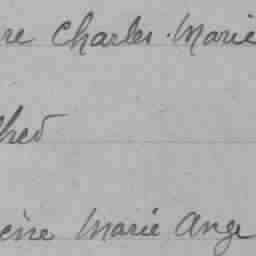 re Charles. Marie
hed
eine Marie Ange